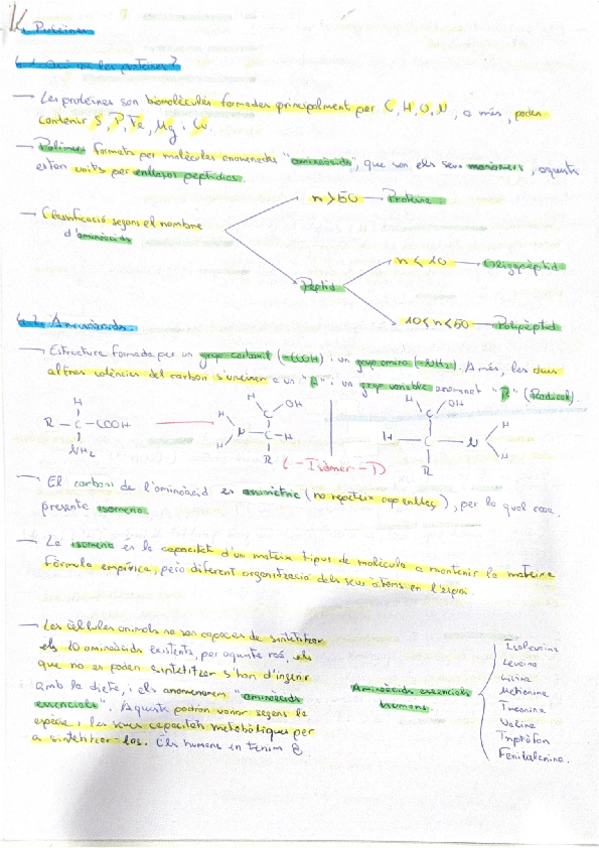 4. Proteïnes
4.1. Què són les proteïnes?
— Les proteïnes són biomolècules formades principalment per C, H, O, N, a més, poden
contenir S, P, Fe, Mg i Cu.
— Polímers formats per molècules anomenades "aminoàcids", que son els seus monòmers, aquests
estan units per enllaços peptídics.
— Classificació segons el nombre
d'aminoàcids
n > 50 — Proteïna
Pèptid
n < 10 — Oligopèptid
10 < n < 50 — Polipèptid
4.2. Aminoàcids.
— Estructura formada per un grup carboxil (-COOH) i un grup amino (-NH2). A més, les dues
altres valències del carboni s'uneixen a un "H" i un grup variable anomenat "R" (Radical).
H
R — C — COOH
NH2
H O C OH
H N — C — H
H R
H O C OH
H — C — N H
R H
L - Isòmer - D
— El carboni de l'aminoàcid es asimètric (no repeteix cap enllaç), per la qual cosa,
presenta isomeria.
— La isomeria és la capacitat d'un mateix tipus de molècula a mantenir la mateixa
fórmula empírica, però diferent organització dels seus àtoms en l'espai.
— Les cèl·lules animals no son capaces de sintetitzar
els 20 aminoàcids existents, per aquesta raó, els
que no es poden sintetitzar s'han d'ingerir
amb la dieta, i els anomenarem "aminoàcids
essencials". Aquests podran variar segons la
espècie i les seves capacitats metabòliques per
a sintetitzar-los. Els humans en tenim 8.
Aminoàcids essencials
humans.
Isoleucina
Leucina
Lisina
Metionina
Treonina
Valina
Triptòfan
Fenilalanina.